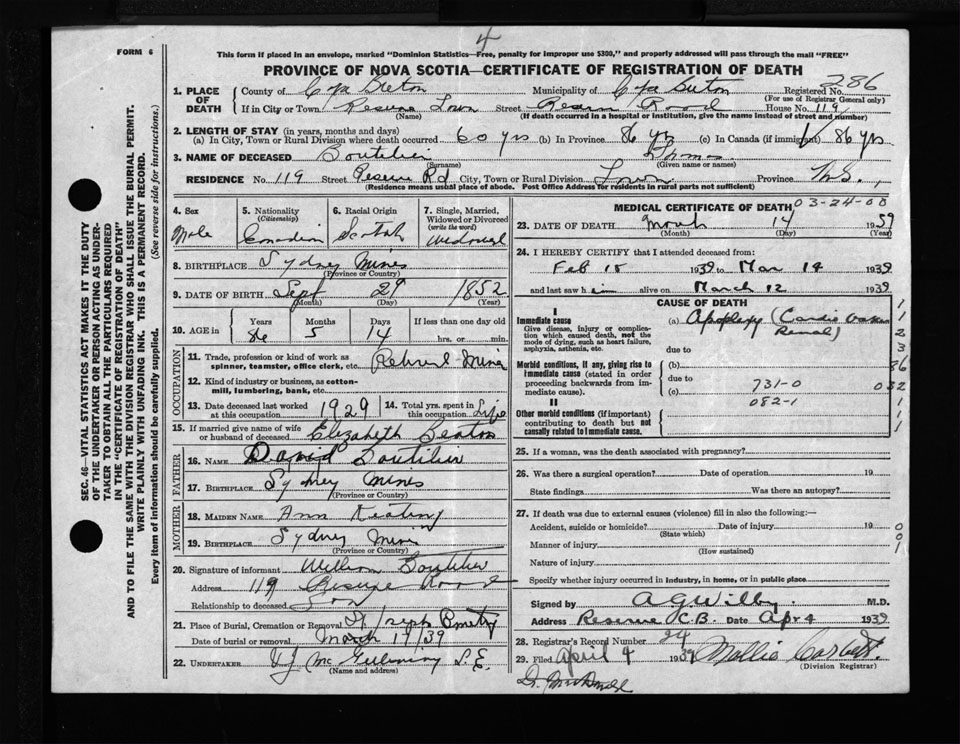 4
FORM 6
This form if placed in an envelope, marked "Dominion Statistics—Free, penalty for improper use $300," and properly addressed will pass through the mail "FREE"
PROVINCE OF NOVA SCOTIA—CERTIFICATE OF REGISTRATION OF DEATH
286
1. PLACE OF DEATH
County of Cape Breton Municipality of Cape Breton Registered No.
(For use of Registrar General only)
If in City or Town Reserve Town Street Reserve Road House No. 119
(Name) (If death occurred in a hospital or institution, give the name instead of street and number)
2. LENGTH OF STAY (in years, months and days)
(a) In City, Town or Rural Division where death occurred 60 yrs (b) In Province 86 yrs (c) In Canada (if immigrant) 86 yrs
3. NAME OF DECEASED Boutilier Thomas
(Surname) (Given name or names)
RESIDENCE No. 119 Street Reserve Rd City, Town or Rural Division Town Province N.S.
(Residence means usual place of abode. Post Office Address for residents in rural parts not sufficient)
4. Sex Male
5. Nationality (Citizenship) Canadian
6. Racial Origin Scotch
7. Single, Married, Widowed or Divorced (write the word) Widowed
8. BIRTHPLACE Sydney Mines
(Province or Country)
9. DATE OF BIRTH Sept 29 1852
(Month) (Day) (Year)
10. AGE in Years Months Days If less than one day old
86 5 14 hrs. or min.
OCCUPATION
11. Trade, profession or kind of work as spinner, teamster, office clerk, etc. Retired Miner
12. Kind of industry or business, as cotton-mill, lumbering, bank, etc.
13. Date deceased last worked at this occupation 1929
14. Total yrs. spent in this occupation Life
15. If married give name of wife or husband of deceased Elizabeth Beaton
FATHER
16. NAME David Boutilier
17. BIRTHPLACE Sydney Mines
(Province or Country)
MOTHER
18. MAIDEN NAME Ann Keating
19. BIRTHPLACE Sydney Mines
(Province or Country)
20. Signature of informant William Boutilier
Address 119 Reserve Road
Relationship to deceased Son
21. Place of Burial, Cremation or Removal St Joseph Cemetry
Date of burial or removal March 17/39
22. UNDERTAKER
(Name and address)
MEDICAL CERTIFICATE OF DEATH 03-24-00
23. DATE OF DEATH March 14 1939
(Month) (Day) (Year)
24. I HEREBY CERTIFY that I attended deceased from:
Feb 15 1939 to Mar 14 1939
and last saw him alive on March 12 1939
CAUSE OF DEATH
I
Immediate cause
Give disease, injury or complication which caused death, not the mode of dying, such as heart failure, asphyxia, asthenia, etc.
(a) Apoplexy (Cardio Renal)
due to
Morbid conditions, if any, giving rise to immediate cause (stated in order proceeding backwards from immediate cause).
(b)
due to
731-0
(c)
082-1
II
Other morbid conditions (if important) contributing to death but not causally related to immediate cause.
1
1
2
3
86
032
1
1
1
25. If a woman, was the death associated with pregnancy?
26. Was there a surgical operation? Date of operation 19
State findings Was there an autopsy?
27. If death was due to external causes (violence) fill in also the following:—
Accident, suicide or homicide? Date of injury 19
(State which)
Manner of injury
(How sustained)
Nature of injury
0
01
Specify whether injury occurred in industry, in home, or in public place
Signed by A G Wilby M.D.
Address Reserve C.B. Date Apr 4 1939
28. Registrar's Record Number 24
29. Filed April 4 1939 Mollie Corbett
(Division Registrar)
SEC. 46—VITAL STATISTICS ACT MAKES IT THE DUTY OF THE UNDERTAKER OR PERSON ACTING AS UNDERTAKER TO OBTAIN ALL THE PARTICULARS REQUIRED IN THE "CERTIFICATE OF REGISTRATION OF DEATH" AND TO FILE THE SAME WITH THE DIVISION REGISTRAR WHO SHALL ISSUE THE BURIAL PERMIT.
WRITE PLAINLY WITH UNFADING INK. THIS IS A PERMANENT RECORD.
Every item of information should be carefully supplied. (See reverse side for instructions.)